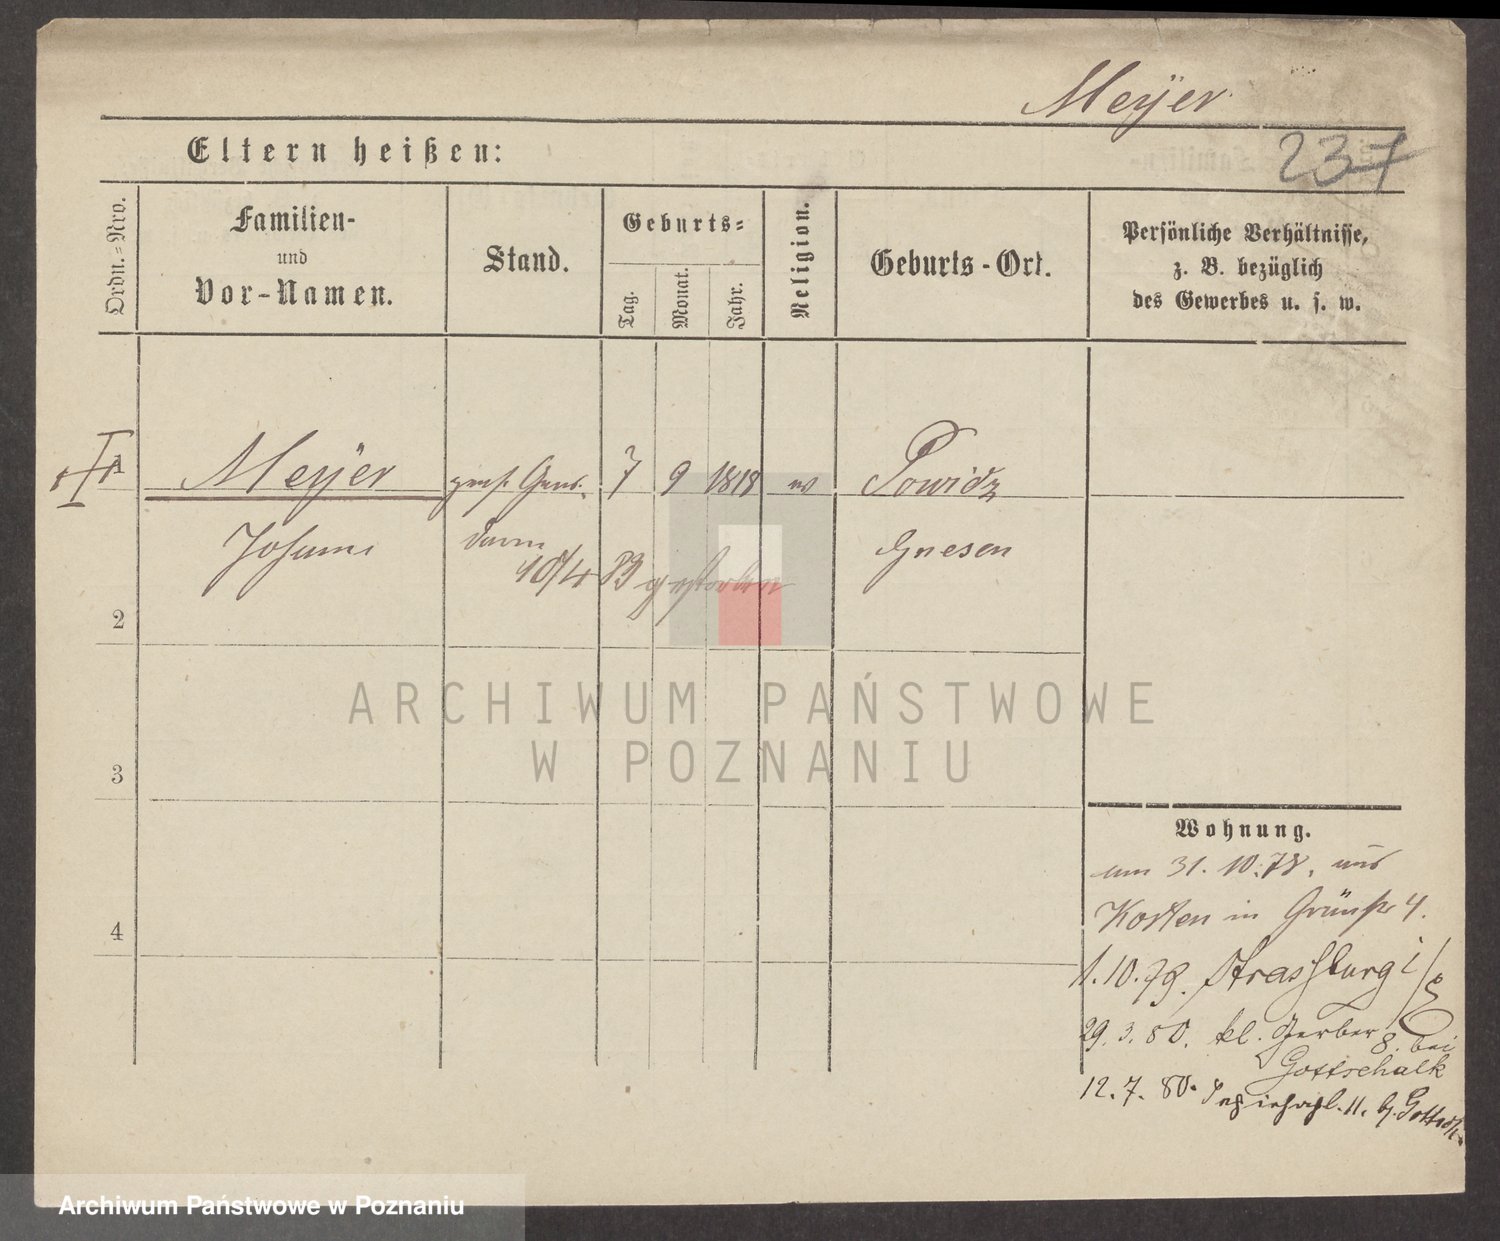 Meÿer
237
Eltern heißen:
Ordn.=Nro.
Familien-
und
Vor-Namen.
Stand.
Geburts=
Tag.
Monat.
Jahr.
Religion.
Geburts-Ort.
Persönliche Verhältnisse,
z. B. bezüglich
des Gewerbes u. s. w.
1
Meÿer
7 9 1818
Powidz
Gnesen
10/4 83 gestorben
2
3
4
ARCHIWUM PAŃSTWOWE
W POZNANIU
Wohnung.
am 31. 10. 78. aus
Kosten in Grünstr 4.
1. 10. 79. Strassburg i/E
29. 3. 80. kl. Gerber 8. bei
Gottschalk
12. 7. 80. 11. b.
Archiwum Państwowe w Poznaniu